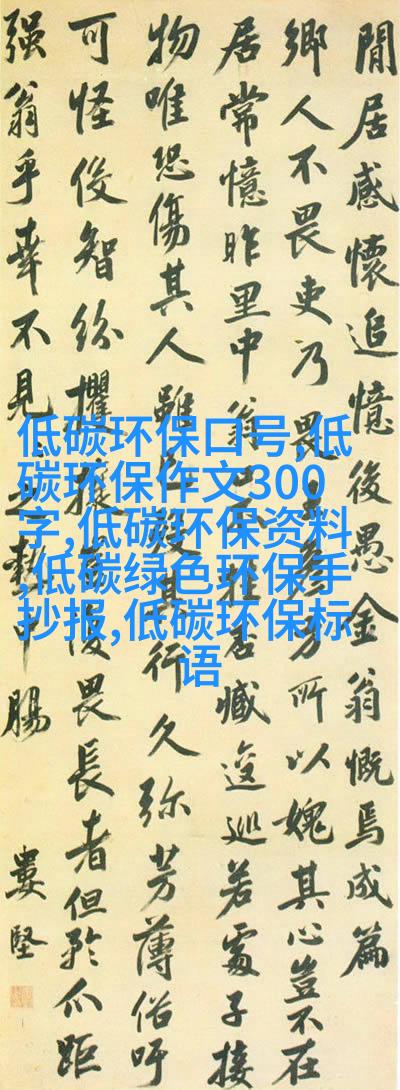 閒居感懷追憶後愚金翁慨焉成篇
鄉人不畏吏乃畏所以媿其心豈不在
居常憶昨里中翁臧逡巡若處子接
物唯恐傷其人雖其行久弥芳薄俗吁
可怪俊智紛攫畏長者但矜爪距
强翁乎幸不見中腸
婁堅
低碳环保口号,低
碳环保作文300
字,低碳环保资料
,低碳绿色环保手
抄报,低碳环保标
语